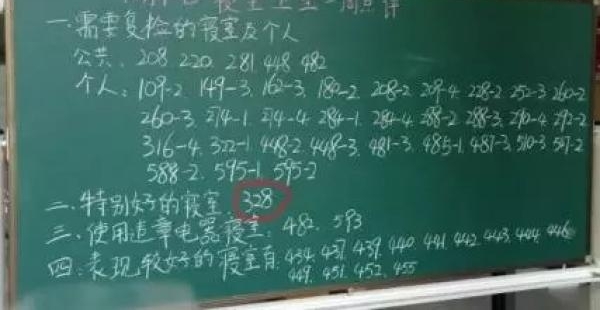 寝室卫生一周点评
一.需要复检的寝室及个人
公共: 208. 220. 281 448 482
个人: 109-2 149-3. 162-3. 180-2 208-2 209-4. 228-2 252-3 260-2
260-3. 274-1 274-4 284-1 284-4 288-2 288-3. 290-4 292-2
316-4 322-1 448-2 448-3. 481-3. 485-1 487-3 510-3 517-2
588-2. 595-1. 595-2
二.特别好的寝室 328
三.使用违章电器寝室 482. 593
四:表现较好的寝室有: 434. 437. 439. 440. 441 442. 443. 444. 446
449. 451. 452. 455